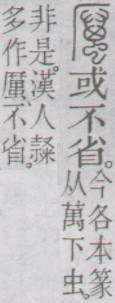 或不省。
今各本篆
从萬下虫。
非是。漢人隸
多作、不省。